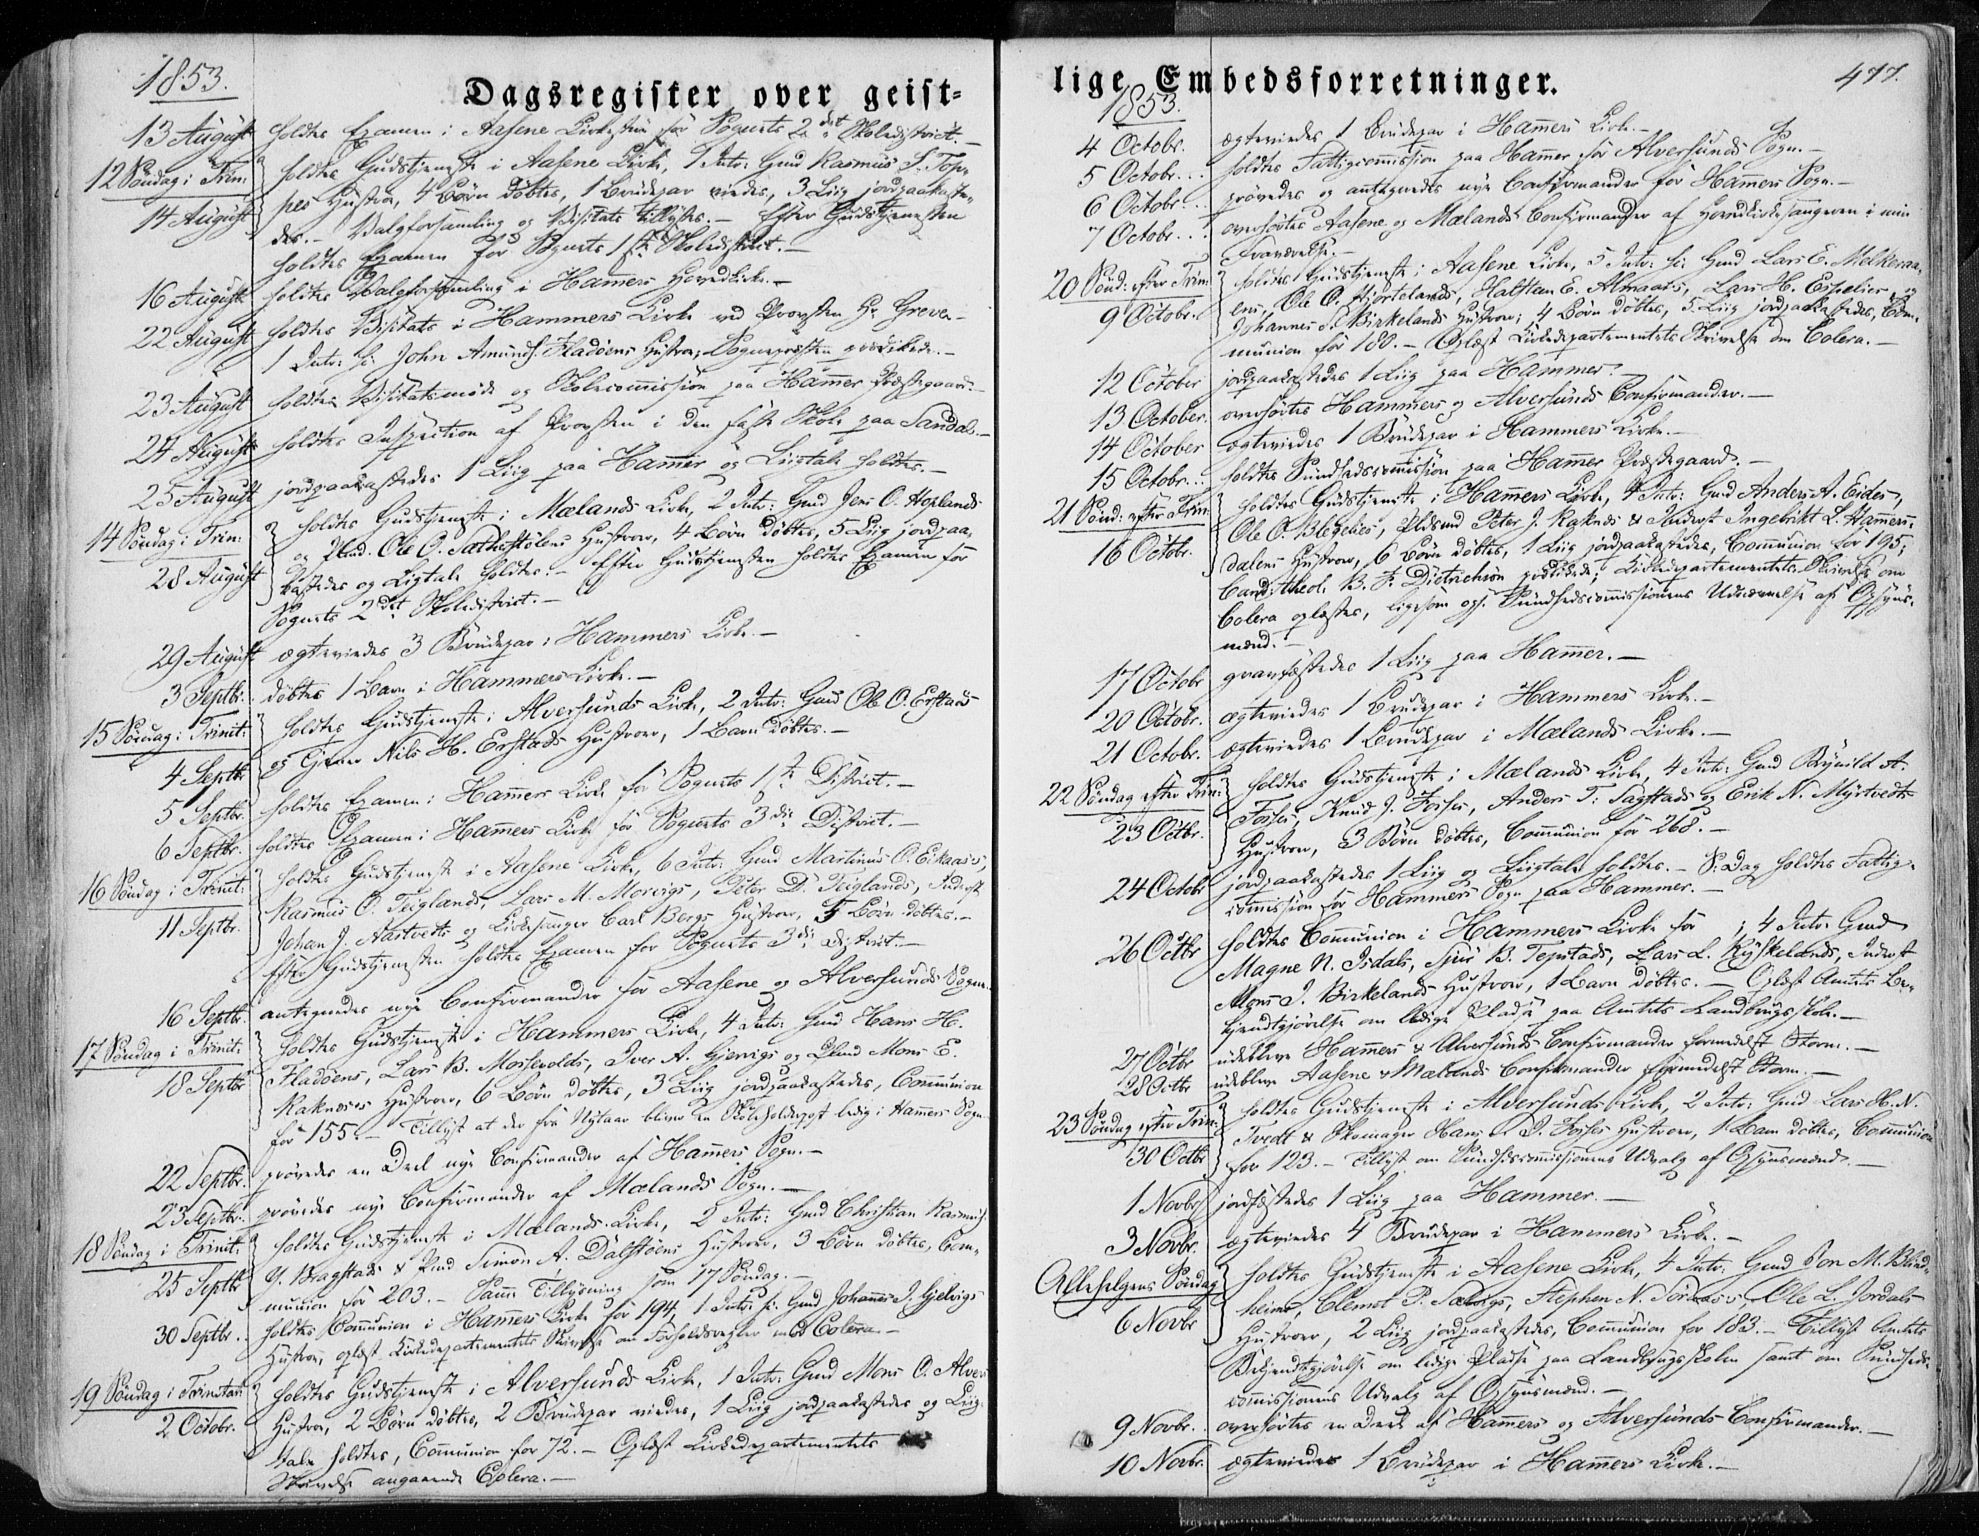 1853.
Dagsregister over geist-
13 August holdtes Examen i Aasene Kirkestue for Sognets 2det Skoledistrict.
12 Søndag i Trin: holdtes Gudstjeneste i Aasene Kirke, 1 Intr: Gmd Rasmus
14 August Hustroe, 4 Børn døbtes, 1 Brudepar viedes, 3 Liig jordpaakaste-
des. - Valgforsamling og Visitats tillystes. - Efter Gudstjenesten
holdtes Examen for Sognets 1ste Skoledistrict. -
16 August holdtes Valgforsamling i Hammers Hovedkirke. -
22 August holdtes Visitats i Hammers Kirke ved Provsten Hr Greve. -
1 Intr: John Amunds. Fladøens Hustroe; Sognepræsten prædikede. -
23 August holdtes Visitatsmøde og Skolecommission paa Hammer Præstegaard. -
24 August holdtes Inspection af Provsten i den faste Skole paa Sandal. -
25 August jordpaakastedes 1 Liig paa Hammer og Liigtale holdtes. -
14 Søndag i Trin: holdtes Gudstjeneste i Mælands Kirke, 2 Intr: Gmd Jens O. Hoplands
28 August og Ole O. Hustroer, 4 Børn døbtes, 5 Liig jordpaa-
kastedes og Ligtale holdtes. - Efter Gudstjenesten holdtes Examen for
Sognets 2det Skoledistrict. -
29 August ægteviedes 3 Brudepar i Hammers Kirke. -
3 Septbr. døbtes 1 Barn i Hammers Kirke. -
15 Søndag i Trinit: holdtes Gudstjeneste i Alversunds Kirke, 2 Intr: Gmd Ole O. Erstads
4 Septbr og Nils H. Erstads Hustroer, 1 Barn døbtes. -
5 Septbr. holdtes Examen i Hammers Kirke for Sognets 1ste District. -
6 Septbr. holdtes Examen i Hammers Kirke for Sognets 3die District. -
16 Søndag i Trinit: holdtes Gudstjeneste i Aasene Kirke, 6 Intr: Gmd Martinus O. Eikaas's,
11 Septbr. Rasmus O. Teiglands, Lars M. Morvigs, Peter D. Teiglands, Inderst
Johan J. Aastvedts og Kirkesanger Carl Bergs Hustroer, 5 Børn døbtes. -
Efter Gudstjenesten holdtes Examen for Sognets 3die District. -
16 Septbr. antegnedes nye Confirmander for Aasene og Alversunds Sogne.
17 Søndag i Trinit: holdtes Gudstjeneste i Hammers Kirke, 4 Intr: Gmd Hans H.
18 Septbr Fladøens, Lars B. Morsevolds, Iver A. Gjervigs og Mons E.
Raknæses Hustroer, 6 Børn døbtes, 3 Liig jordpaakastedes, Communion
for 155. - Tillyst at der fra Nytaar bliver en Skoleholderpost ledig i Hammers Sogn.
22 Septbr. prøvedes en Deel nye Confirmander af Hammers Sogn. -
23 Septbr. prøvedes nye Confirmander af Mælands Sogn. -
18 Søndag i Trinit: holdtes Gudstjeneste i Mælands Kirke, 2 Intr: Gmd Christian Rasmus.
25 Septbr Y. Bragstads & Simon A. Dalstøens Hustroer, 3 Børn døbtes, Com-
munion for 203. - Samme Tillysning som 17 Søndag. -
30 Septbr. holdtes Communion i Hammers Kirke for 194, 1 Intr: Gmd Johannes J. Gjelvigs
Hustroe, oplæst Kirkedepartementets Skrivelse om Forholdsregler mod Colera -
19 Søndag i Trinitatis holdtes Gudstjeneste i Alversunds Kirke, 1 Intr: Gmd Mons O. Alvers
2 Octobr. Hustroe, 2 Børn døbtes, 2 Brudepar viedes, 1 Liig jordpaakastedes og Liig-
tale holdtes, Communion for 72. - Oplæst Kirkedepartementets
Skrivelse angaaende Colera. -
lige Embedsforretninger. 477.
1853.
4 Octobr. ægteviedes 1 Brudepar i Hammers Kirke. -
5 Octobr. holdtes Fattigcommission paa Hammer for Alversunds Sogn. -
6 Octobr prøvedes og antegnedes nye Confirmander for Hammers Sogn. -
7 Octobr. overhørtes Aasene og Mælands Confirmander af Hovedkirkesangeren i min
Fraværelse. -
20 Sønd: efter Trin: holdtes Gudstjeneste i Aasene Kirke, 5 Intr: Gmd Lars E. Melkeraa-
9 Octobr. ens, Ole O. Hjortelands, Halsten E. Almaas's, Lars H. Espelier og
Johannes S. Birkelands Hustroer; 4 Børn døbtes, 5 Liig jordpaakastedes, Com-
munion for 180. - Oplæst Kirkedepartementets Skrivelse om Colera. -
12 October jordpaakastedes 1 Liig paa Hammer. -
13 October. overhørtes Hammers og Alversunds Confirmander. -
14 October ægteviedes 1 Brudepar i Hammers Kirke. -
15 Octobr. holdtes Sundhedscommission paa Hammer Præstegaard. -
21 Sønd: efter Trin: holdtes Gudstjeneste i Hammers Kirke, 4 Intr: Gmd Anders A. Eides,
16 Octbr. Ole O. Peter J. Raknes & Inderst Ingebrikt L. Hammers-
dalens Hustroer, 6 Børn døbtes, 1 Liig jordpaakastedes, Communion for 195;
Cand: theol. B. F. Dietrichson prædikede; Kirkedepartementets Skrivelse om
Colera oplæstes, ligesom ogs. Sundhedscommissionens Udnævnelse af Opsyns-
mænd. -
17 Octobr gravfæstedes 1 Liig paa Hammer. -
20 Octobr. ægteviedes 1 Brudepar i Hammers Kirke. -
21 Octobr. ægteviedes 1 Brudepar i Mælands Kirke. -
22 Søndag efter Trin: holdtes Gudstjeneste i Mælands Kirke, 4 Intr: Gmd Brynild A.
23 Octbr. Fosses, Knud J. Fosses, Anders T. Sagstads og Erik N. Myrtvedts
Hustroer, 3 Børn døbtes, Communion for 268. -
24 Octobr jordpaakastedes 1 Liig og Liigtale holdtes. - S: Dag holdtes Fattig-
commission for Hammers Sogn paa Hammer. -
26 Octbr holdtes Communion i Hammers Kirke for ; 4 Intr: Gmd
Magne N. Isdals, Sjur B. Tepstads, Lars L. Inderst
Mons J. Birkelands Hustroer, 1 Barn døbtes. - Oplæst Amtets Be-
kjendtgjørelse om ledige Pladse paa Amtets Landbrugsskole. -
27 Octbr udebleve Hammers & Alversunds Confirmander formedelst Storm. -
28 Octbr udebleve Aasene & Mælands Confirmander formedelst Storm. -
23 Søndag efter Trin: holdtes Gudstjeneste i Alversunds Kirke, 2 Intr: Gmd Lars H. N.
30 Octbr Tvedt & Skomager Hans J. Fosses Hustroer, 1 Barn døbtes, Communion
for 123. - Tillyst om Sundhedscommissionens Udvalg af Opsynsmænd. -
1 Novbr jordfæstedes 1 Liig paa Hammer. -
3 Novbr. ægteviedes 4 Brudepar i Hammers Kirke. -
Allehelgens Søndag holdtes Gudstjeneste i Aasene Kirke, 4 Intr: Gmd Jon M. Blind-
6 Novbr heims, Clemet P. Stephen N. Ole L. Jordals
Hustroer, 2 Liig jordpaakastedes, Communion for 183. - Tillyst Amtets
Bekjendtgjørelse om ledige Pladse paa Landbrugsskolen samt om Sundheds-
commissionens Udvalg af Opsynsmænd. -
9 Novbr. overhørtes en Deel af Hammers og Alversunds Confirmander. -
10 Novbr. ægteviedes 1 Brudepar i Hammers Kirke. -